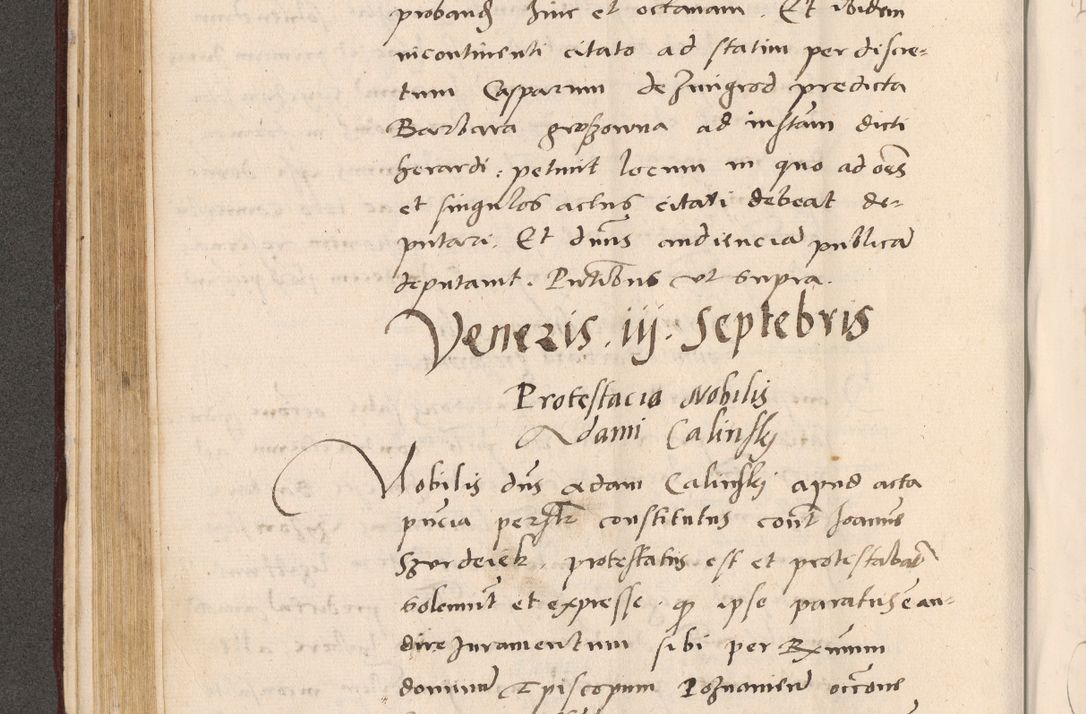 proband hinc et octavam. Et ibidem
incontinenti citato ad statim per discre-
tum Casparum de Zmigrod predicta
Barbara groszowna ad instam dicti
herardi, petiuit locum in quo ad oes
et singulos actus citati debeat de-
putari. Et dnus audiencia publica
deputauit. Pntibus ut supra.
Veneris. iij. Septebris
Protestacio Nobilis
Adami Calinskj
Nobilis dns Adam Calinskj apud acta
pncia personlr constitutus cont Joannem
Szurdeiek, protestatus est et protestabat
solennit et expresse. q ipse paratus e au-
dire Juramentum sibi per Rximum
dominum Episcopum Poznaniens occone